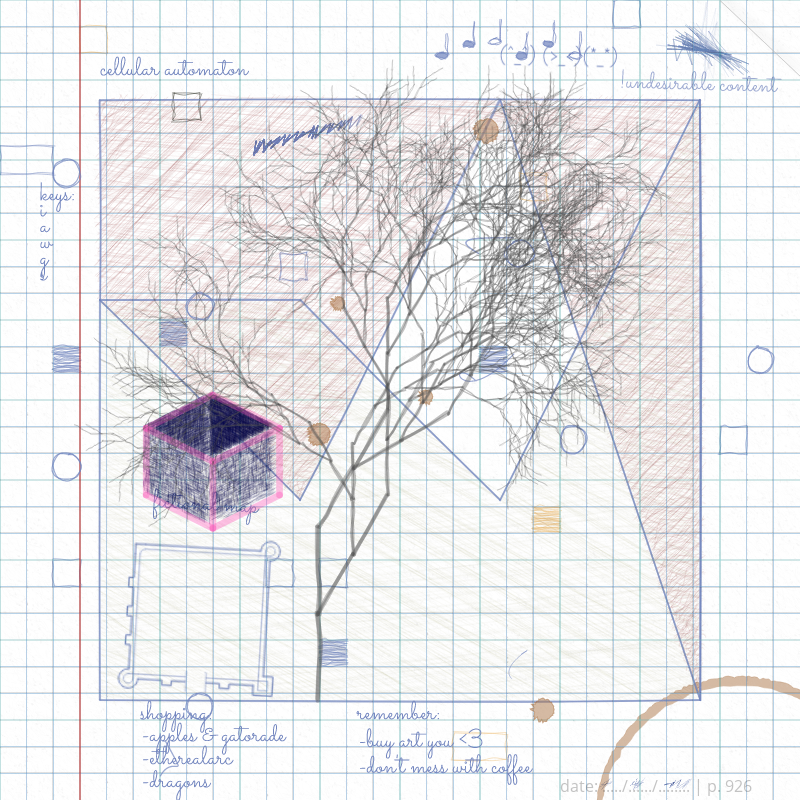 (^_^) (>_<)(*_*)
cellular automaton
!undesirable content
keys:
i
a
w
g
s
fictional map
shopping:
-apples & gatorade
-ethsrealarc
-dragons
remember:
-buy art you <3
-don't mess with coffee
date: | p. 926